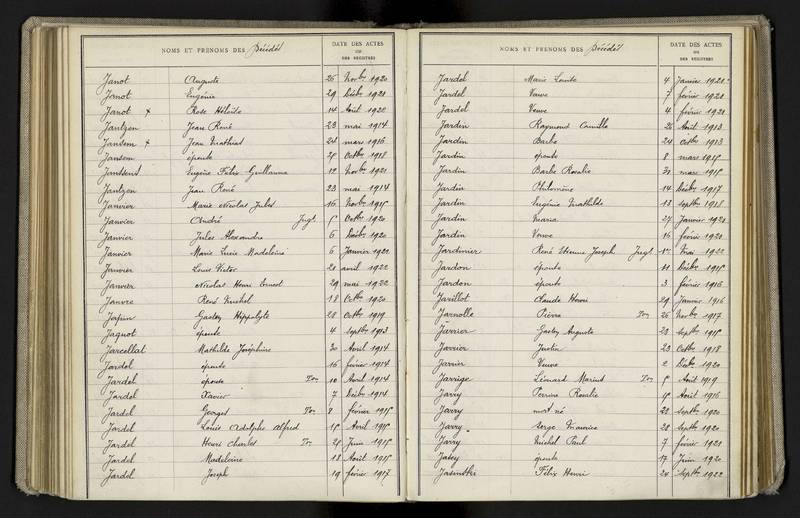 NOMS ET PRÉNOMS DES Décédés
DATE DES ACTES
OU
DES REGISTRES
Janot Auguste 26 Novbre 1920
Janot Eugénie 29 Décbre 1921
Janot x Rose Héloïse 14 Août 1920
Jantzen Jean René 23 mai 1914
Jansem x Jean Mathias 24 mars 1916
Jansem épouse 28 Octbre 1918
Eugène Felix Guillaume 12 Novbre 1921
Jantzen Jean René 23 mai 1914
Janvier Marie Nicolas Jules 16 Novbre 1915
Janvier André Jugt 5 Octbre 1920
Janvier Jules Alexandre 6 Décbre 1920
Janvier Marie Lucie Madeleine 6 Janvier 1922
Janvier Louis Victor 20 avril 1922
Janvier Nicolas Henri Ernest 29 mai 1922
Janvre René Michel 18 Octbre 1920
Japin Gaston Hippolyte 28 Octbre 1919
Jaquot épouse 4 septbre 1913
Jarcellat Mathilde Joséphine 30 Avril 1914
Jardel épouse 16 février 1914
Jardel épouse Ton 10 Avril 1914
Jardel Xavier 7 Décbre 1914
Jardel Georges Ton 8 février 1915
Jardel Louis Adolphe Alfred 15 Avril 1915
Jardel Henri Charles Ton 25 Juin 1915
Jardel Madeleine 18 Août 1915
Jardel Joseph 19 février 1917
NOMS ET PRÉNOMS DES Décédés
DATE DES ACTES
OU
DES REGISTRES
Jardel Marie Louise 4 Janvier 1921
Jardel Veuve 7 février 1921
Jardel Veuve 4 février 1921
Jardin Raymond Camille 26 Août 1913
Jardin Barbe 24 Octbre 1913
Jardin épouse 8 mars 1915
Jardin Barbe Rosalie 31 mars 1915
Jardin Philomène 14 Décbre 1917
Jardin Eugénie Mathilde 13 septbre 1918
Jardin Maria 27 Janvier 1921
Jardin Veuve 16 février 1921
Jardinier René Etienne Joseph Jugt Mai 1922
Jardon épouse 11 Décbre 1915
Jardon épouse 3 février 1916
Jarillot Claude Henri 29 Janvier 1916
Jarnolle Pierre Ton 26 Novbre 1917
Jarrier Gaston Auguste 23 septbre 1915
Jarrier Justin 23 Octbre 1918
Jarrier Veuve 2 Décbre 1920
Jarrige Léonard Marius Ton 5 Août 1919
Jarry Perrine Rosalie 15 Août 1916
Jarry mort né 28 septbre 1920
Jarry Serge Maurice 28 septbre 1920
Jarry Michel Paul 7 février 1921
Jasey épouse 17 Juin 1920
Jasinski Félix Henri 24 Septbre 1922